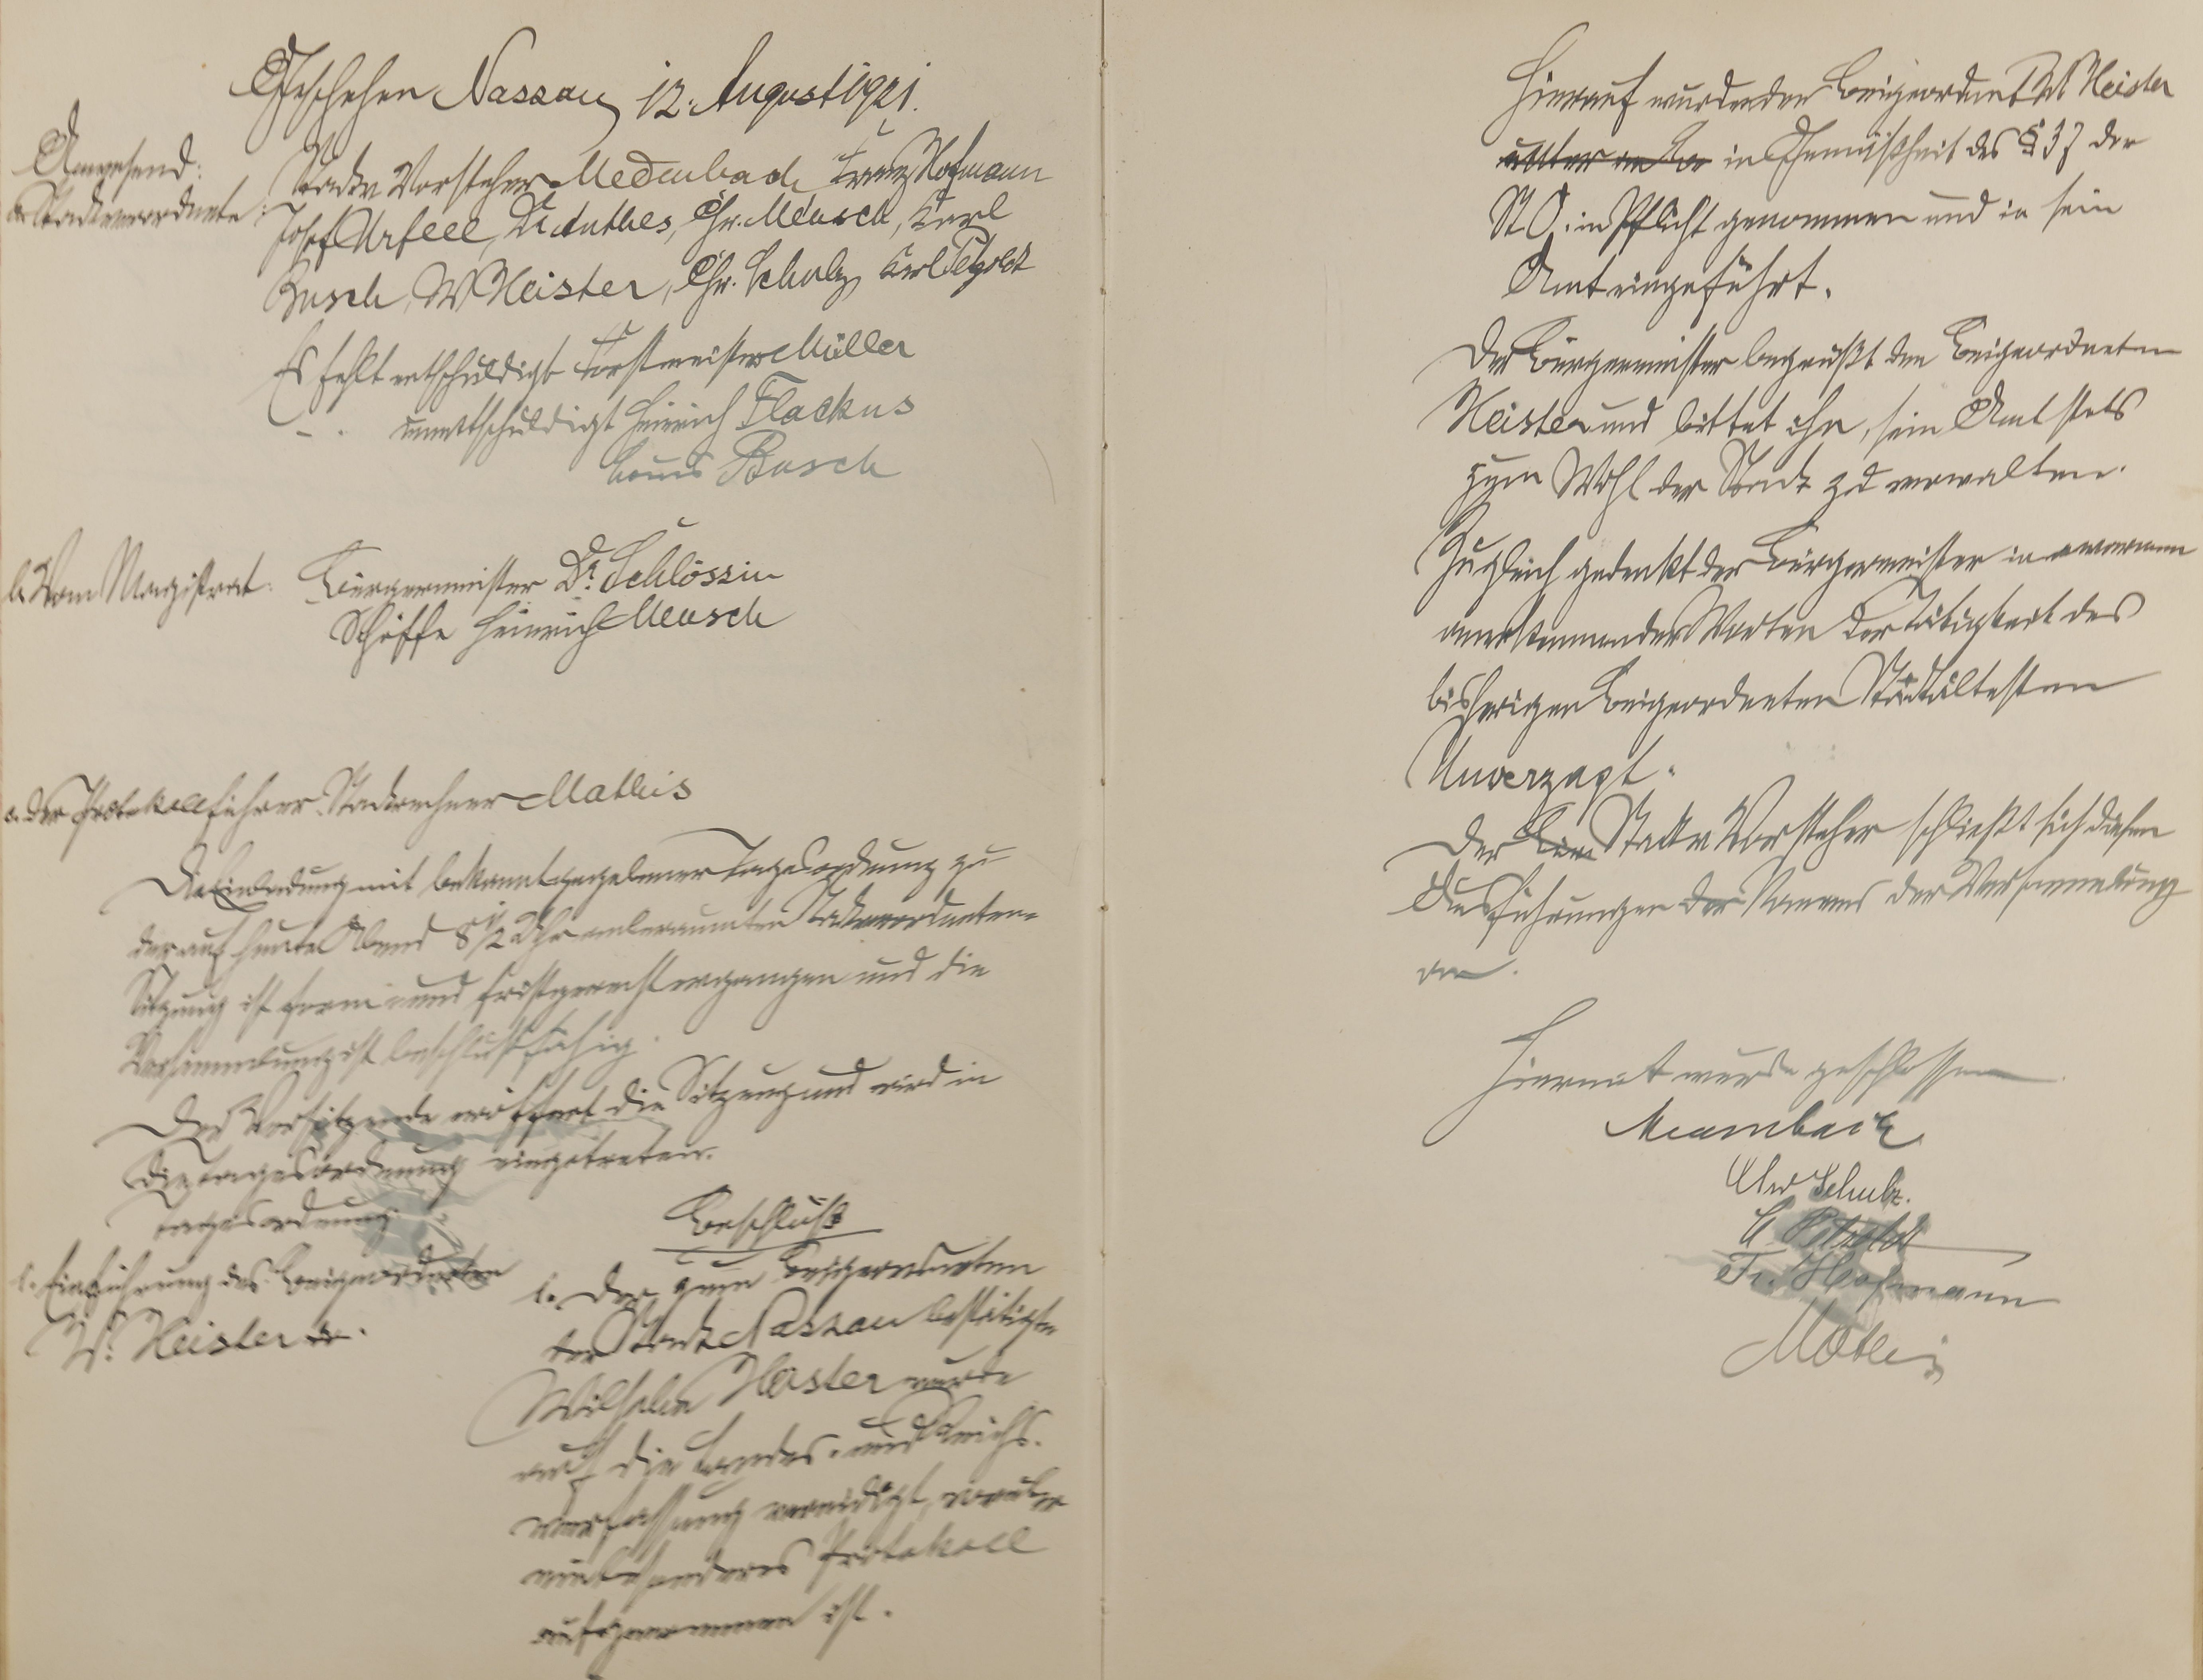 Geschehen Nassau, 12. August 1921.
Anwesend:
a. Stadtverordnete:
Stadtv. Vorsteher Medenbach, Franz Hofmann
Josef Urfell, Dr. Anthes, Chr. Meusch, Karl
Busch, W Heister, Chr. Schulz, Karl Petzoldt
Es fehlt entschuldigt Forstmeister Müller
- " unentschuldigt Heinrich Flackus
Louis Busch
b. Vom Magistrat:
Bürgermeister Dr. Schlössin
Schöffe Heinrich Meusch
c. Der Protokollführer: Stadtrechner Mathis
Die Einladung mit bekanntgegebener Tagesordnung zu
der auf heute Abend 8 1/2 Uhr anberaumten Stadtverordneten-
Sitzung ist form- und fristgerecht ergangen und die
Versammlung ist beschlußfähig.
Der Vorsitzende eröffnet die Sitzung und wird in
die Tagesordnung eingetreten.
Tagesordnung
1. Einführung des Beigeordneten
W. Heister
Beschluß
1. Der zum Beigeordneten
der Stadt Nassau bestätigte
Wilhelm Heister wurde
auf die Landes- und Reichs-
verfassung vereidigt, worüber
ein besonderes Protokoll
aufgenommen ist.
Hierauf wurde der Beigeordnete W Heister
in Gemäßheit des § 37 der
St.O. in Pflicht genommen und in sein
Amt eingeführt.
Der Bürgermeister begrüßt den Beigeordneten
Heister und bittet ihn, sein Amt stets
zum Wohl der Stadt zu verwalten.
Zugleich gedenkt der Bürgermeister in warmen
anerkennenden Worten der Tätigkeit des
bisherigen Beigeordneten Stadtältesten
Unverzagt.
Der Stadtv. Vorsteher schließt sich diesen
Ausführungen Namens der Versammlung
an.
Hiermit wurde geschlossen
Medenbach
Chr Schulz.
C. Petzoldt
Fr. Hofmann
Mathis